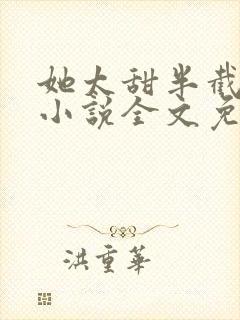 她太甜半截
小說全文免
洪重華